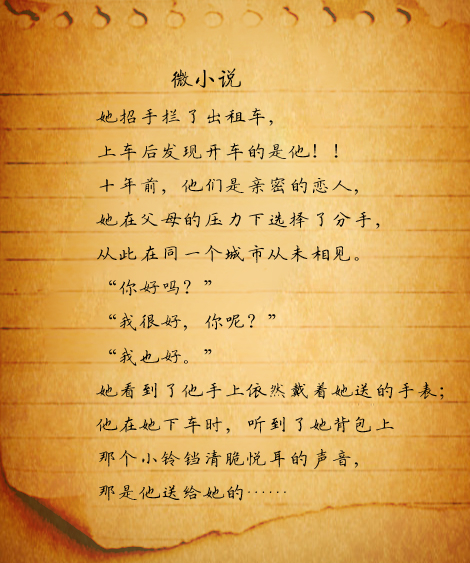 微小说
她招手拦了出租车，
上车后发现开车的是他！！
十年前，他们是亲密的恋人，
她在父母的压力下选择了分手，
从此在同一个城市从未相见。
“你好吗？”
“我很好，你呢？”
“我也好。”
她看到了他手上依然戴着她送的手表；
他在她下车时，听到了她背包上
那个小铃铛清脆悦耳的声音，
那是他送给她的……